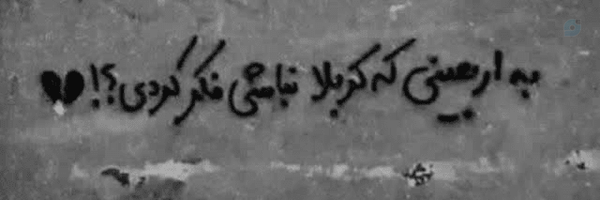 به اربعینی که کربلا نباشی فکر کردی؟!